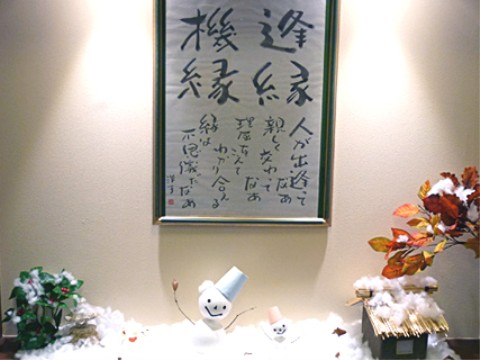 逢縁
機縁
人が出逢って
なあ
親しく交わって
なあ
理屈こえて
わかり合える
縁は
不思議だなあ